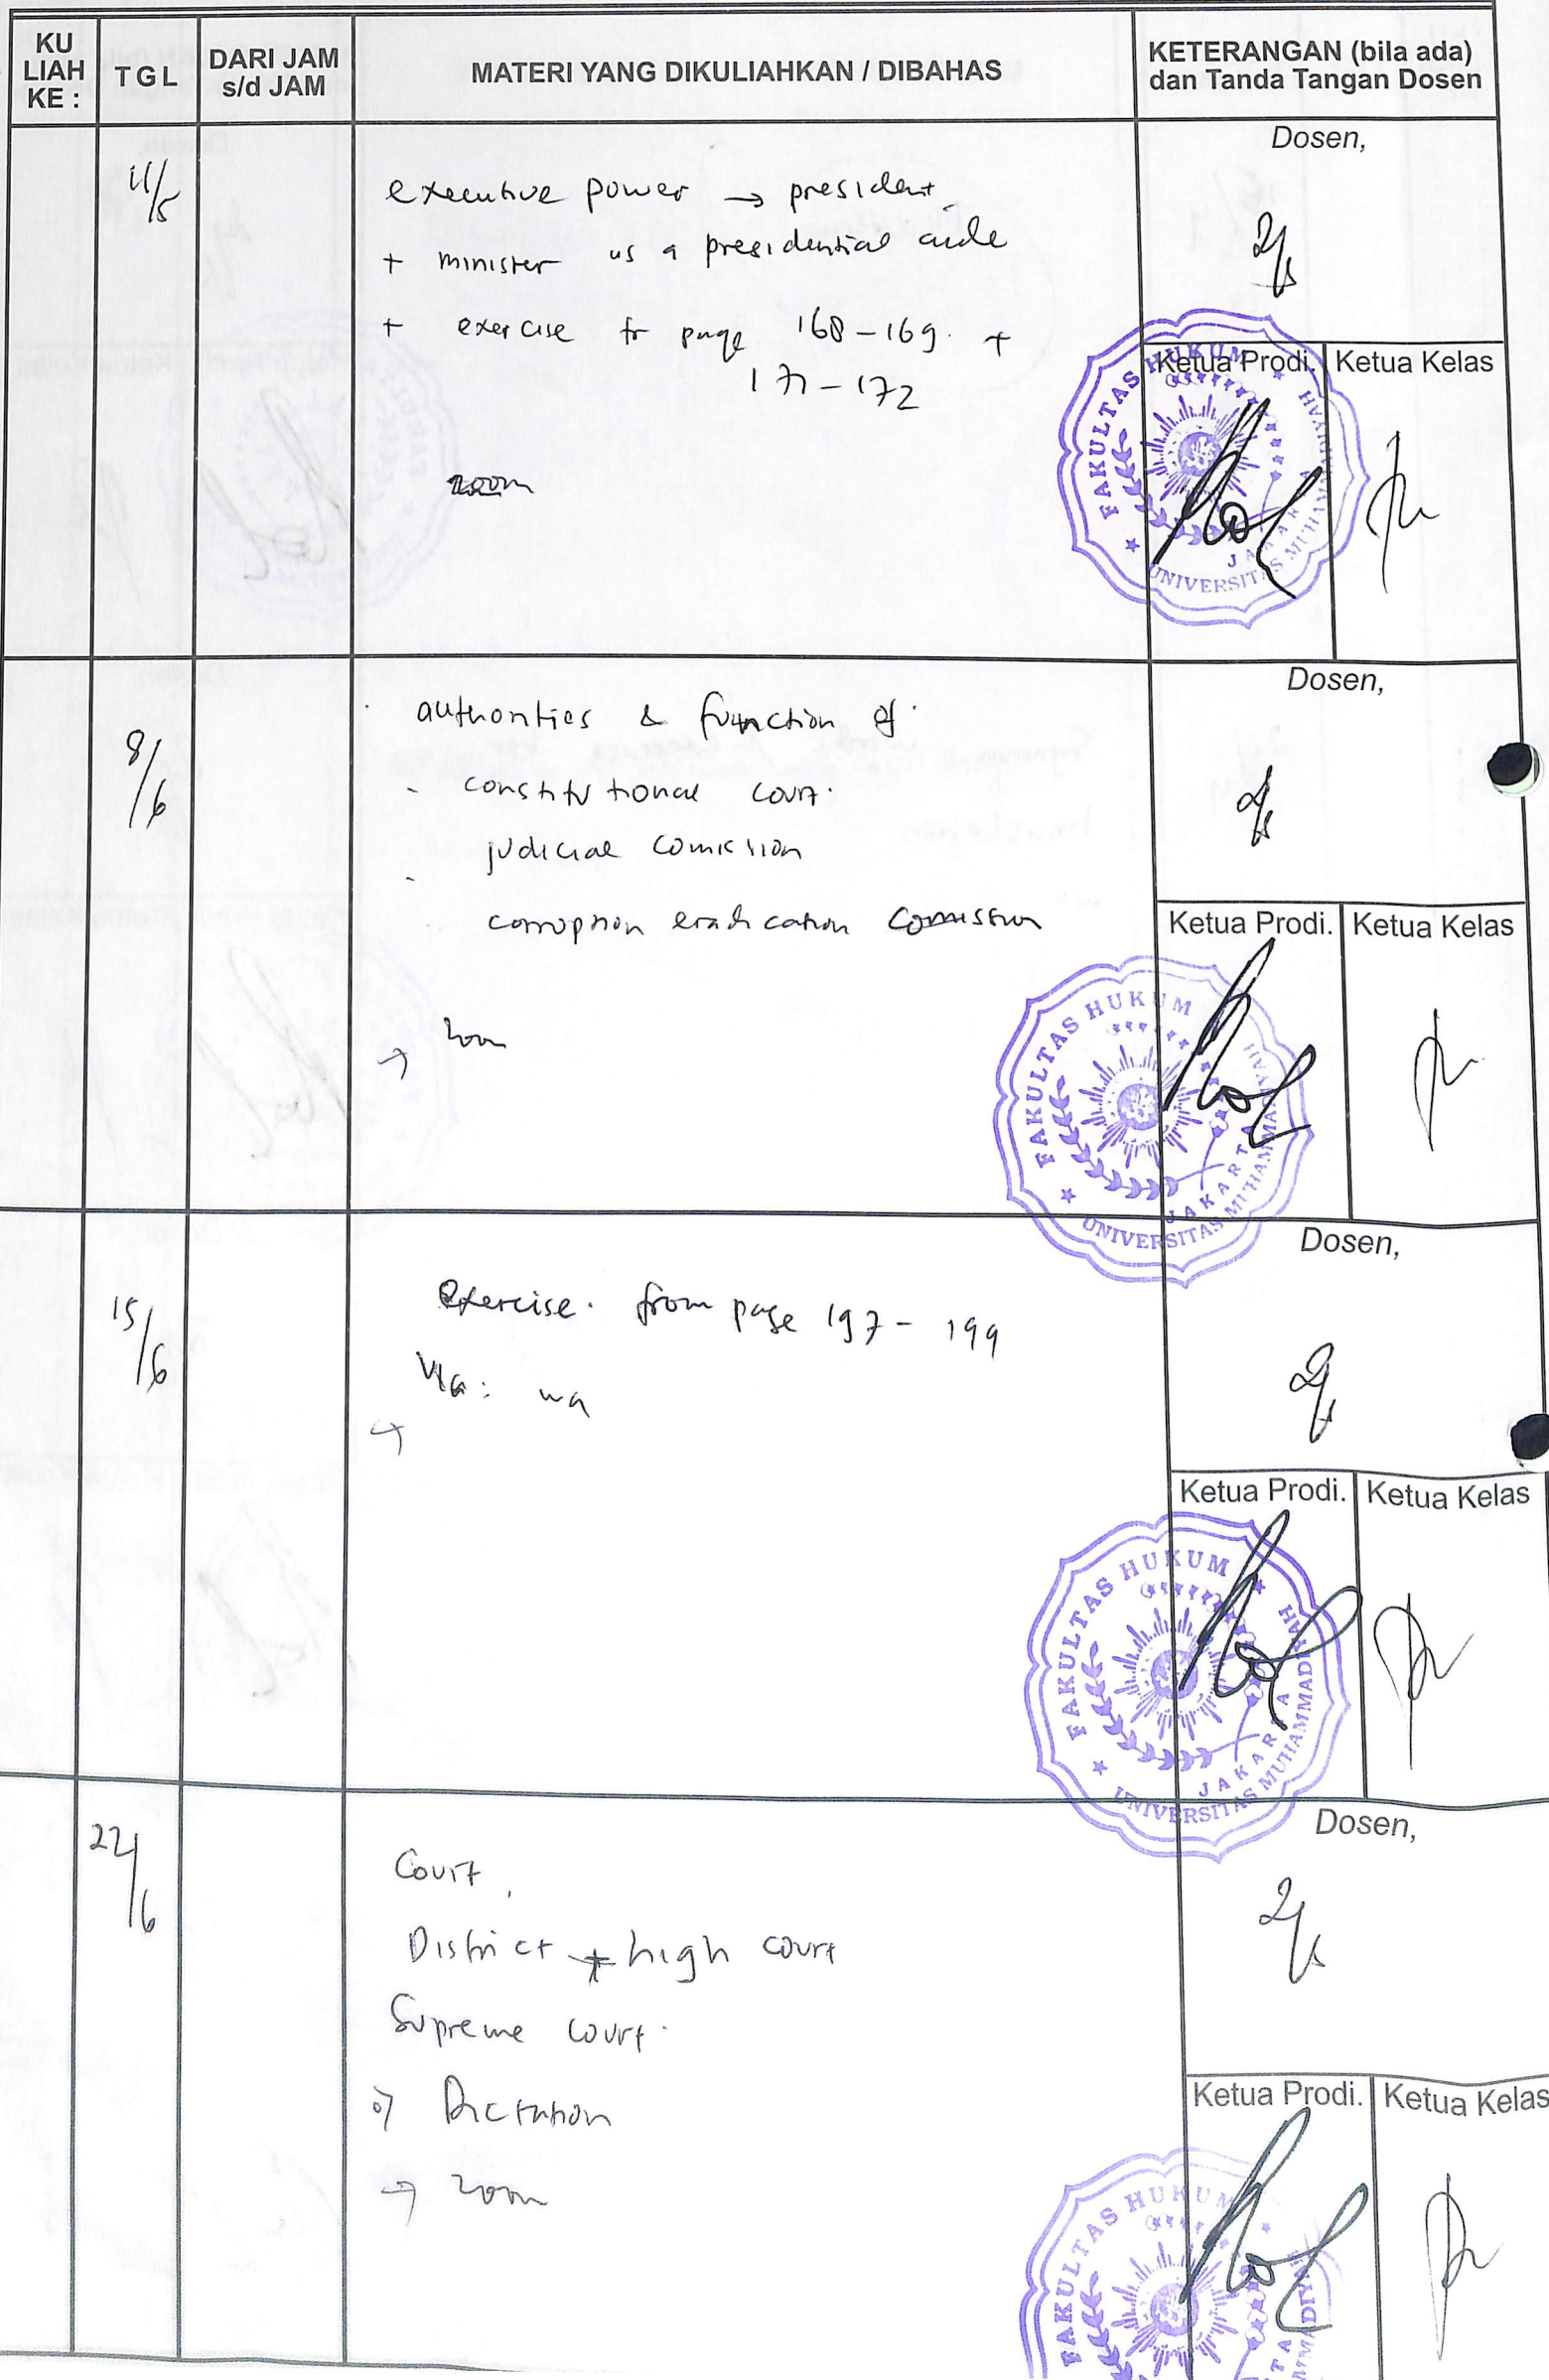 KU LIAH KE :
T G L
DARI JAM s/d JAM
MATERI YANG DIKULIAHKAN / DIBAHAS
KETERANGAN (bila ada) dan Tanda Tangan Dosen
11/5
executive power → president
+ minister as a presidential aide
+ exercise fr page 168 - 169. +
171 - 172
zoom
Dosen,
Ketua Prodi.
Ketua Kelas
FAKULTAS HUKUM
UNIVERSITAS MUHAMMADIYAH
JAKARTA
8/6
authorities & function of
- constitutional court.
- judicial comission
corruption eradication comission
→ zoom
Dosen,
Ketua Prodi.
Ketua Kelas
FAKULTAS HUKUM
UNIVERSITAS MUHAMMADIYAH
JAKARTA
15/6
Exercise. from page 197 - 199
→ Via : wa
Dosen,
Ketua Prodi.
Ketua Kelas
FAKULTAS HUKUM
UNIVERSITAS MUHAMMADIYAH
JAKARTA
22/6
Court
District + high court
Supreme court.
Dictation
→ zoom
Dosen,
Ketua Prodi.
Ketua Kelas
FAKULTAS HUKUM